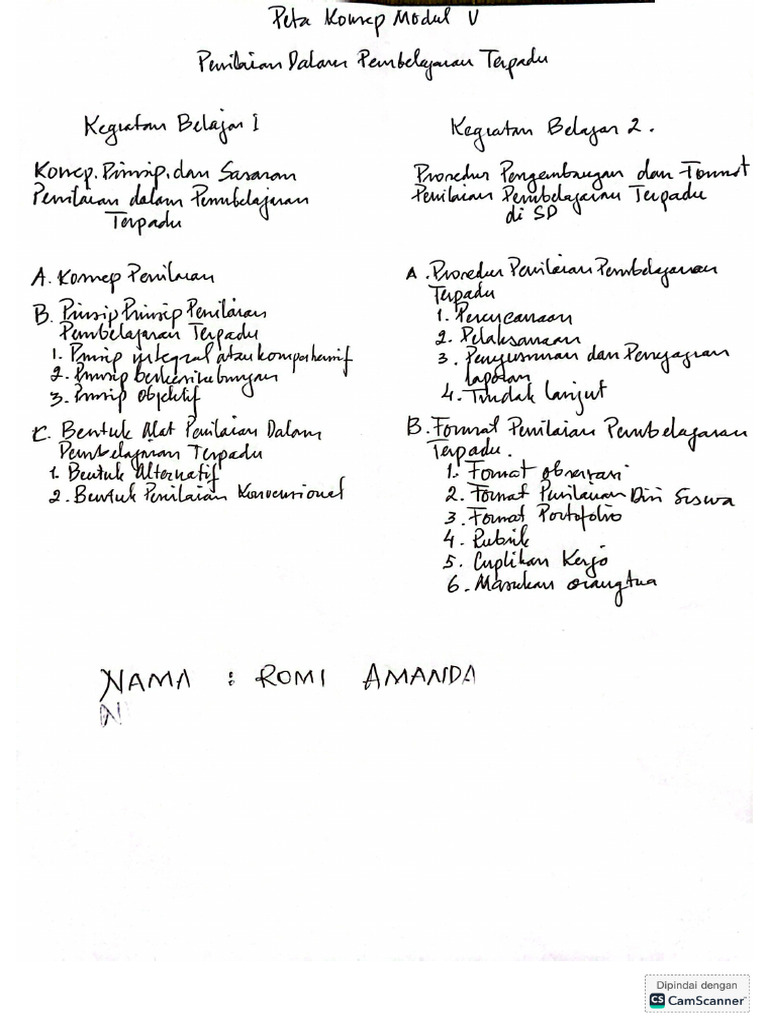 Peta Konsep Modul V
Penilaian Dalam Pembelajaran Terpadu
Kegiatan Belajar 1
Konsep, Prinsip, dan Sasaran
Penilaian dalam Pembelajaran
Terpadu
A. Konsep Penilaian
B. Prinsip Prinsip Penilaian
Pembelajaran Terpadu
1. Prinsip integral atau komprehensif
2. Prinsip berkesinabungan
3. Prinsip objektif
C. Bentuk Alat Penilaian Dalam
Pembelajaran Terpadu
1. Bentuk Alternatif
2. Bentuk Penilaian Konvensional
Kegiatan Belajar 2.
Prosedur Pengembangan dan Format
Penilaian Pembelajaran Terpadu
di SD
A. Prosedur Penilaian Pembelajaran
Terpadu
1. Perencanaan
2. Pelaksanaan
3. Penyusunan dan Penyajian
laporan
4. Tindak lanjut
B. Format Penilaian Pembelajaran
Terpadu.
1. Format observasi
2. Format Penilaian Diri Siswa
3. Format Portofolio
4. Rubrik
5. Cuplikan Kerja
6. Masukan orangtua
NAMA : ROMI AMANDA
N
Dipindai dengan
CS CamScanner